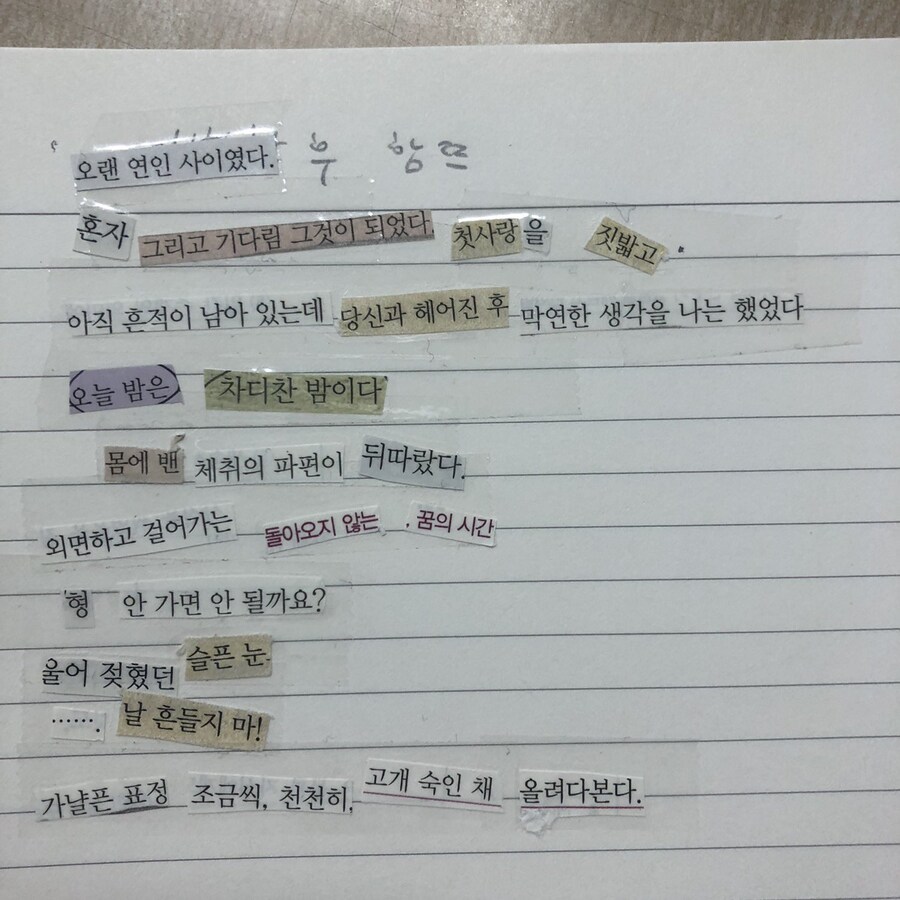 오랜 연인 사이였다.
혼자 그리고 기다림 그것이 되었다 첫사랑을 짓밟고.
아직 흔적이 남아 있는데 당신과 헤어진 후 막연한 생각을 나는 했었다
오늘 밤은 차디찬 밤이다
몸에 밴 체취의 파편이 뒤따랐다.
외면하고 걸어가는 돌아오지 않는 . 꿈의 시간
형 안 가면 안 될까요?
울어 젖혔던 슬픈 눈.
……. 날 흔들지 마!
가냘픈 표정 조금씩, 천천히, 고개 숙인 채 올려다본다.